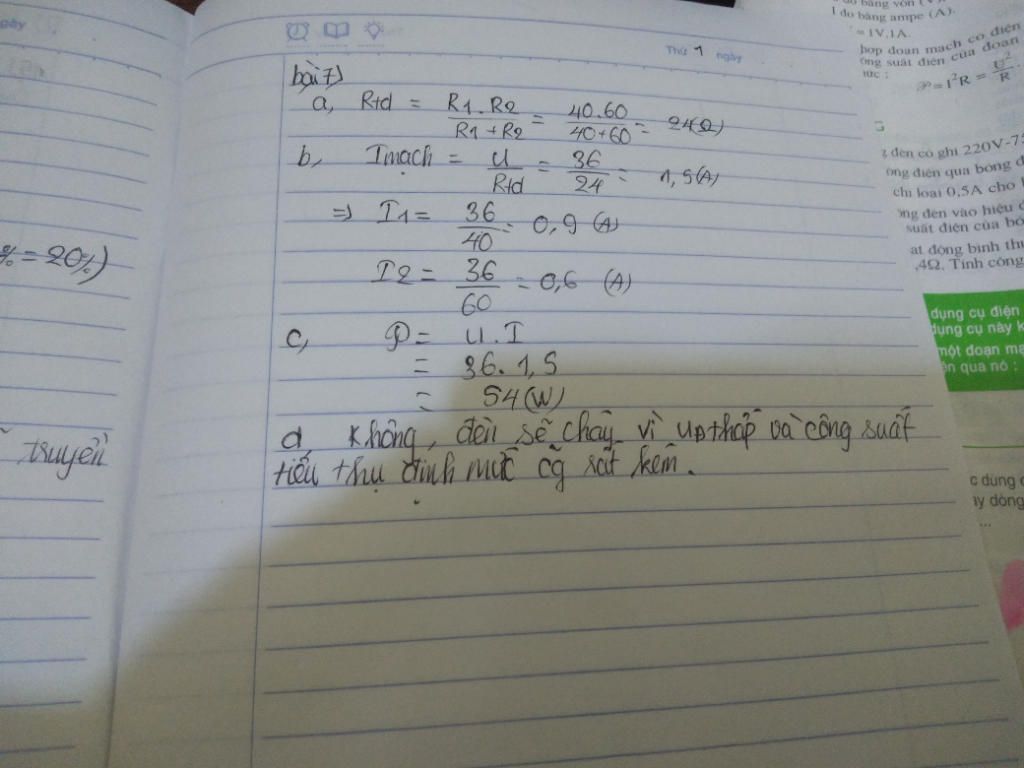 Thứ 1 ngày
bài 7)
a, Rtđ = R1.R2 / R1+R2 = 40.60 / 40+60 = 24(Ω)
b, Imạch = U / Rtđ = 36 / 24 = 1,5(A)
=> I1 = 36 / 40 = 0,9 (A)
I2 = 36 / 60 = 0,6 (A)
c, P = U.I
= 36.1,5
= 54(W)
d Không, đèn sẽ cháy vì UĐ thấp và công suất
tiêu thụ định mức cg sất kém.
ngày
% = 20%)
truyền
đo bằng vôn (V),
I đo bằng ampe (A).
= 1V.1A.
hợp đoạn mạch có điện
ông suất điện của đoạn
ức :
𝒫 = I²R = U²/R.
g đèn có ghi 220V-75
ong điện qua bóng đ
chì loại 0,5A cho
óng đèn vào hiệu
suất điện của bó
ạt động bình thư
,4Ω. Tính công
dụng cụ điện
dụng cụ này k
một đoạn mạ
ện qua nó :
c dùng
ay dòng
...